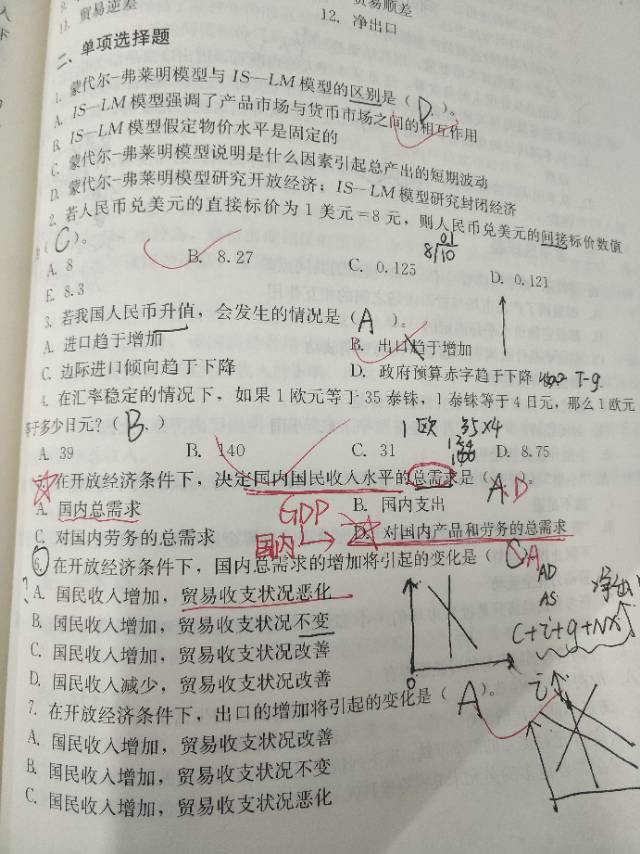 11. 贸易逆差
贸易顺差
12. 净出口
二、单项选择题
1. 蒙代尔-弗莱明模型与 IS—LM 模型的区别是（ D ）。
A. IS—LM 模型强调了产品市场与货币市场之间的相互作用
B. IS—LM 模型假定物价水平是固定的
C. 蒙代尔-弗莱明模型说明是什么因素引起总产出的短期波动
D. 蒙代尔-弗莱明模型研究开放经济；IS—LM 模型研究封闭经济
2. 若人民币兑美元的直接标价为 1 美元=8 元，则人民币兑美元的间接标价数值
（ C ）。
A. 8 B. 8.27 C. 0.125 D. 0.121
E. 8.3
3. 若我国人民币升值，会发生的情况是（ A ）。
A. 进口趋于增加 B. 出口趋于增加
C. 边际进口倾向趋于下降 D. 政府预算赤字趋于下降 T-g
4. 在汇率稳定的情况下，如果 1 欧元等于 35 泰铢，1 泰铢等于 4 日元，那么 1 欧元
等于多少日元？（ B. ） 1欧 35×4
A. 39 B. 140 C. 31 D. 8.75
在开放经济条件下，决定国内国民收入水平的总需求是（ A D ）。
A. 国内总需求 GDP B. 国内支出
C. 对国内劳务的总需求 国内 D. 对国内产品和劳务的总需求
6. 在开放经济条件下，国内总需求的增加将引起的变化是（ A
A. 国民收入增加，贸易收支状况恶化 AD
B. 国民收入增加，贸易收支状况不变 AS
C. 国民收入增加，贸易收支状况改善 C+i+g+NX
D. 国民收入减少，贸易收支状况改善 0 i
7. 在开放经济条件下，出口的增加将引起的变化是（ A ）。
A. 国民收入增加，贸易收支状况改善
B. 国民收入增加，贸易收支状况不变
C. 国民收入增加，贸易收支状况恶化